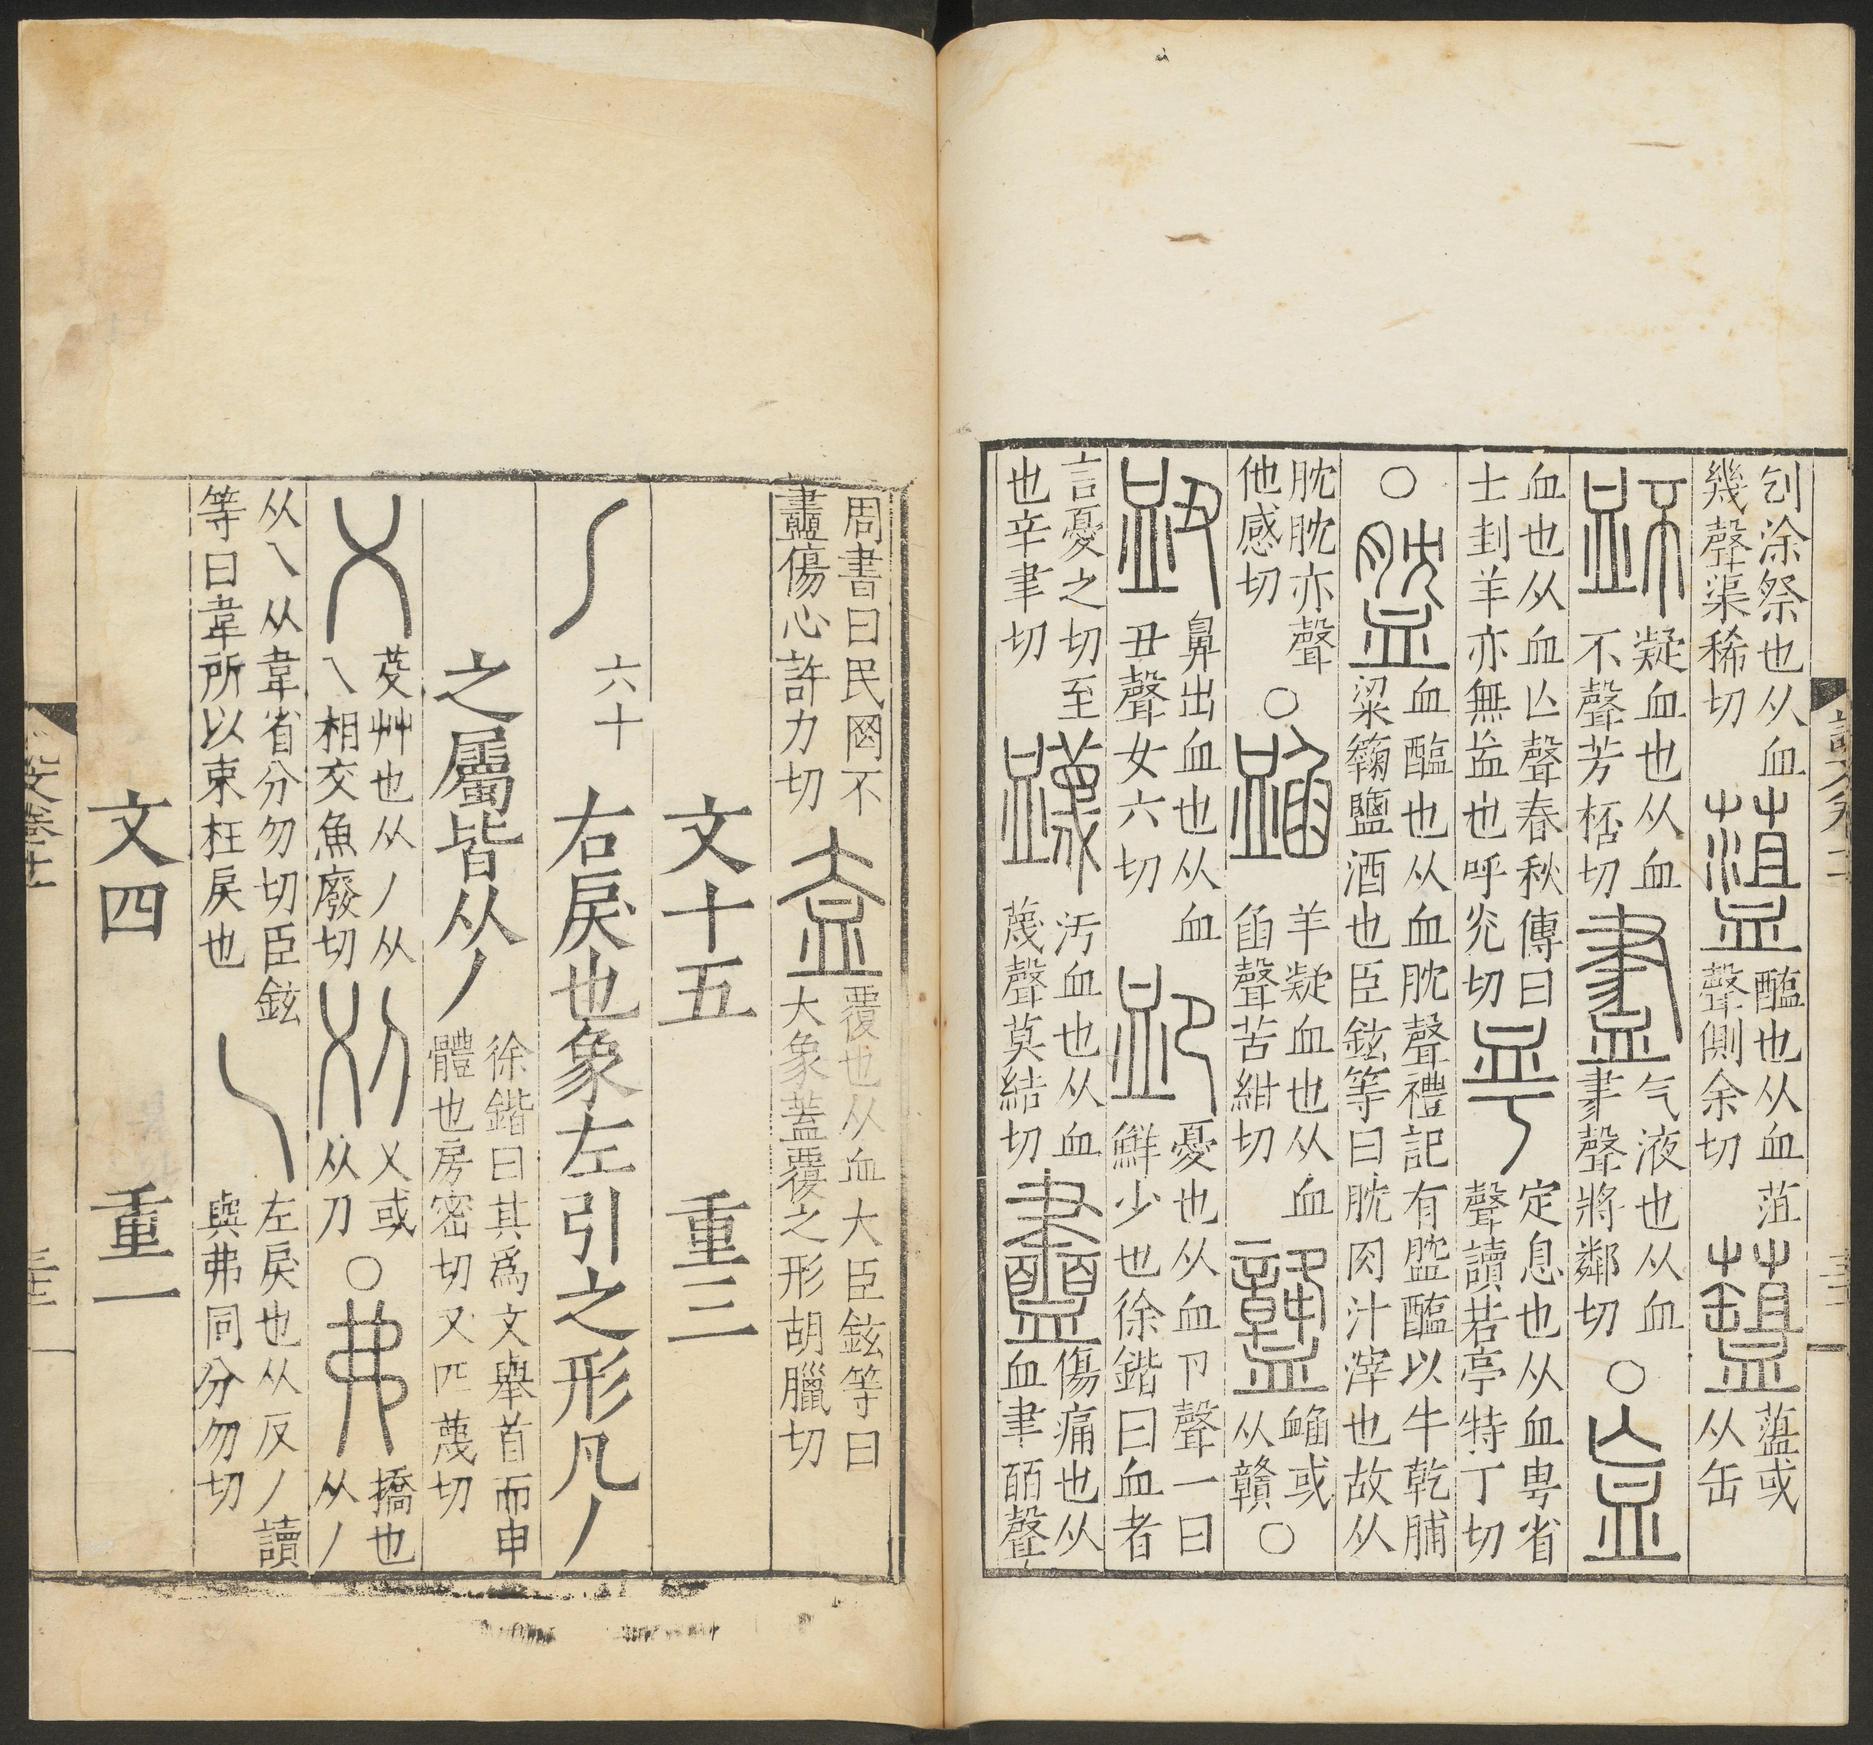 刉涂祭也从血
幾聲渠稀切
醢也从血菹
聲側余切
𥂥或
从缶
凝血也从血
不聲芳桮切
气液也从血
𦘔聲將鄰切
○
血也从血亾聲春秋傳曰
士刲羊亦無衁也呼光切
定息也从血甹省
聲讀若亭特丁切
○
血醢也从血肬聲禮記有監醢以牛乾脯
粱䉤鹽酒也臣鉉等曰肬肉汁滓也故从
肬肬亦聲
他感切
○
羊凝血也从血
臽聲苦紺切
衉或
从贛
○
鼻出血也从血
丑聲女六切
憂也从血卩聲一曰
鮮少也徐鍇曰血者
言憂之切至
也辛聿切
汚血也从血
蔑聲莫結切
傷痛也从
血聿皕聲
周書曰民罔不
衋傷心許力切
覆也从血大臣鉉等曰
大象蓋覆之形胡臘切
文十五 重三
六十
右戾也象左引之形凡丿
之屬皆从丿
徐鍇曰其爲文舉首而申
體也房密切又匹蔑切
芟艸也从丿从
乀相交魚廢切
乂或
从刀
○
撟也
从丿
从乀从韋省分勿切臣鉉
等曰韋所以束枉戾也
左戾也从反丿讀
與弗同分勿切
文四 重一